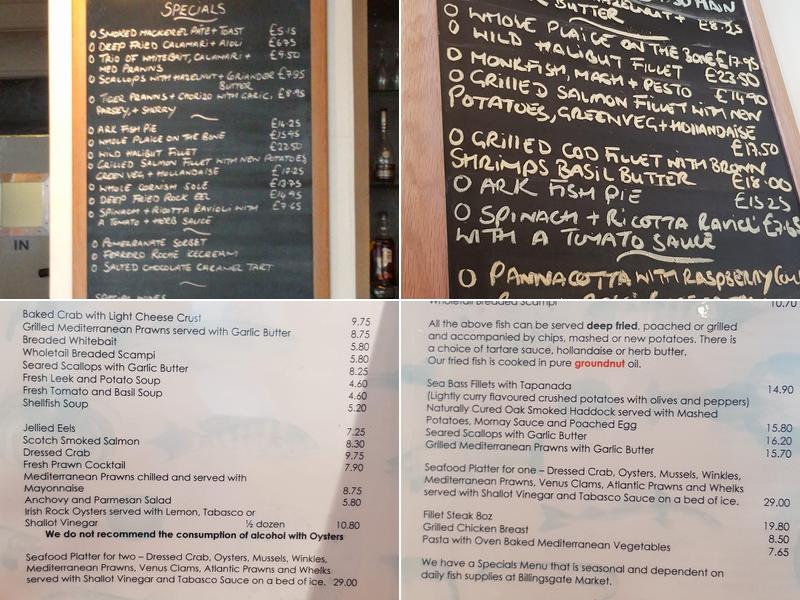 SPECIALS
O SMOKED MACKEREL PATE + TOAST £5.15
O DEEP FRIED CALAMARI + AIOLI £6.75
O TRIO OF WHITEBAIT, CALAMARI + £9.50
MED PRAWNS
O SCALLOPS WITH HAZELNUT + CORIANDER £7.95
BUTTER
O TIGER PRAWNS + CHORIZO WITH GARLIC, £8.95
PARSLEY, + SHERRY
O ARK FISH PIE £14.25
O WHOLE PLAICE ON THE BONE £15.95
O WILD HALIBUT FILLET £22.50
O GRILLED SALMON FILLET WITH NEW POTATOES
GREEN VEG + HOLLANDAISE £17.25
O WHOLE CORNISH SOLE £13.75
O DEEP FRIED ROCK EEL £14.95
O SPINACH + RICOTTA RAVIOLI WITH £7.65
A TOMATO + HERB SAUCE
O POMEGRANATE SORBET
O FERRERO ROCHE ICECREAM
O SALTED CHOCOLATE CARAMEL TART
SPECIAL WINES
IN
MAIN
BUTTER £8.25
O WHOLE PLAICE ON THE BONE £17.95
O WILD HALIBUT FILLET £23.50
O MONKFISH, MASH + PESTO £14.90
O GRILLED SALMON FILLET WITH NEW
POTATOES, GREEN VEG + HOLLANDAISE
£17.50
O GRILLED COD FILLET WITH BROWN
SHRIMPS BASIL BUTTER £18.00
O ARK FISH PIE £15.25
O SPINACH + RICOTTA RAVIOLI £7.65
WITH A TOMATO SAUCE
O PANNACOTTA WITH RASPBERRY
Baked Crab with Light Cheese Crust 9.75
Grilled Mediterranean Prawns served with Garlic Butter 8.75
Breaded Whitebait 5.80
Wholetail Breaded Scampi 5.80
Seared Scallops with Garlic Butter 8.25
Fresh Leek and Potato Soup 4.60
Fresh Tomato and Basil Soup 4.60
Shellfish Soup 5.20
Jellied Eels 7.25
Scotch Smoked Salmon 8.30
Dressed Crab 9.75
Fresh Prawn Cocktail 7.90
Mediterranean Prawns chilled and served with
Mayonnaise 8.75
Anchovy and Parmesan Salad 5.80
Irish Rock Oysters served with Lemon, Tabasco or
Shallot Vinegar ½ dozen 10.80
We do not recommend the consumption of alcohol with Oysters
Seafood Platter for two – Dressed Crab, Oysters, Mussels, Winkles,
Mediterranean Prawns, Venus Clams, Atlantic Prawns and Whelks
served with Shallot Vinegar and Tabasco Sauce on a bed of ice. 29.00
Wholetail Breaded Scampi 10.70
All the above fish can be served deep fried, poached or grilled
and accompanied by chips, mashed or new potatoes. There is
a choice of tartare sauce, hollandaise or herb butter.
Our fried fish is cooked in pure groundnut oil.
Sea Bass Fillets with Tapanada 14.90
(Lightly curry flavoured crushed potatoes with olives and peppers)
Naturally Cured Oak Smoked Haddock served with Mashed
Potatoes, Mornay Sauce and Poached Egg 15.80
Seared Scallops with Garlic Butter 16.20
Grilled Mediterranean Prawns with Garlic Butter 15.70
Seafood Platter for one – Dressed Crab, Oysters, Mussels, Winkles,
Mediterranean Prawns, Venus Clams, Atlantic Prawns and Whelks
served with Shallot Vinegar and Tabasco Sauce on a bed of ice. 29.00
Fillet Steak 8oz 19.80
Grilled Chicken Breast 8.50
Pasta with Oven Baked Mediterranean Vegetables 7.65
We have a Specials Menu that is seasonal and dependent on
daily fish supplies at Billingsgate Market.